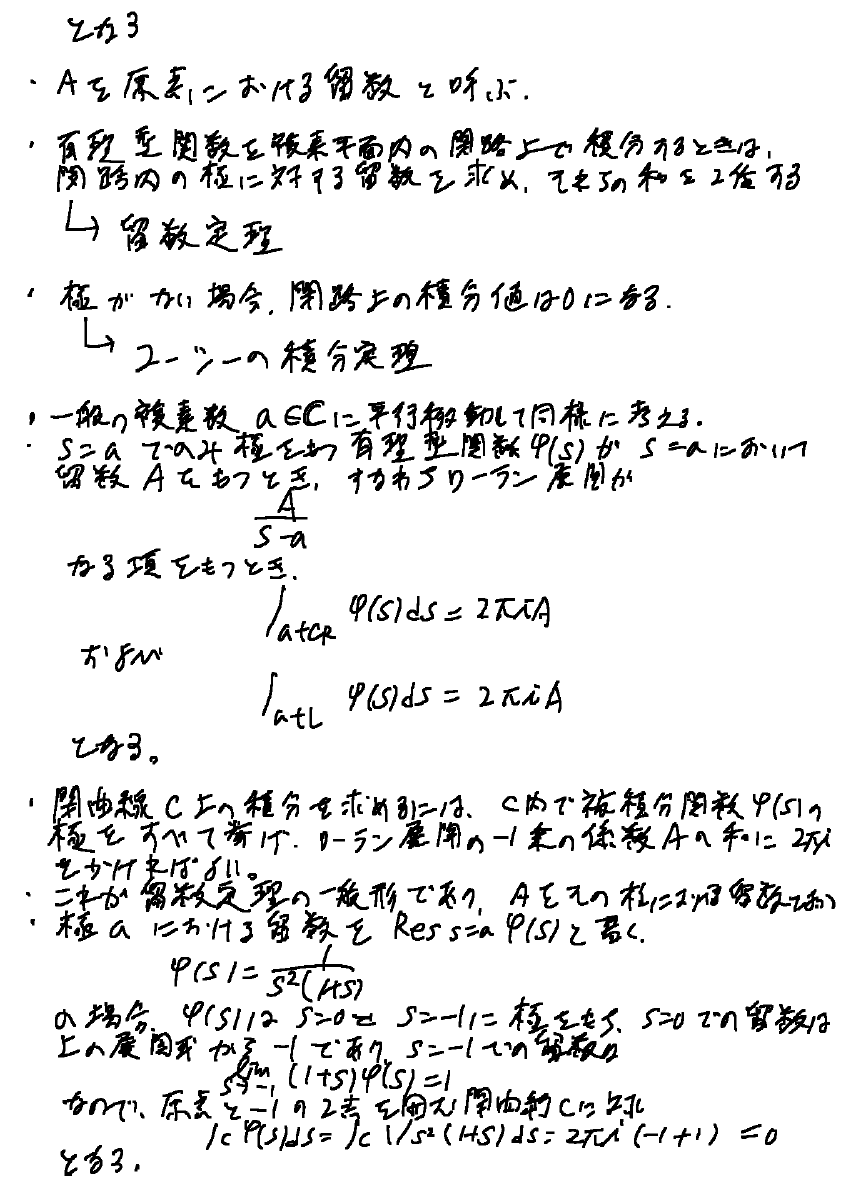 となる
・Aを原点における留数と呼ぶ.
・有理型関数を複素平面内の閉路上で積分するときは,
閉路内の極に対する留数を求め,それらの和を2倍する
↳ 留数定理
・極がない場合,閉路上の積分値は0になる.
↳ コーシーの積分定理
・一般の複素数 a∈ℂに平行移動して同様に考える.
・s=a でのみ極をもつ有理型関数φ(s)が s=aにおいて
留数 Aをもつとき, すなわちローラン展開が
A/(s-a)
なる項をもつとき.
∫_{a+CR} φ(s)ds = 2πiA
および
∫_{a+L} φ(s)ds = 2πiA
となる。
・閉曲線C上の積分を求めるには、C内で被積分関数φ(s)の
極をすべて挙げ.ローラン展開の-1乗の係数Aの和に2πi
をかければよい。
・これが留数定理の一般形であり,Aをその極における留数で
・極aにおける留数をRes s=a φ(s)と書く.
φ(s)=1/(s²(1+s))
の場合,φ(s)は s=0と s=-1に極をもち、s=0での留数は
上の展開形から -1であり,s=-1での留数は
lim s→-1 (1+s)φ(s)=1
なので、原点と-1の2点を囲む閉曲線Cに
∫c φ(s)ds=∫c 1/s²(1+s)ds=2πi(-1+1)=0
となる.